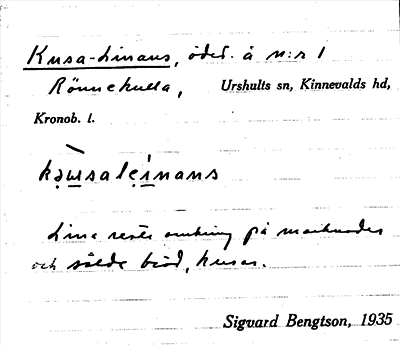 Kusa-Linans, öded. å n:r 1
Rönnekulla, Urshults sn, Kinnevalds hd,
Kronob. l.
kə̣wsalẹinans
Lina reste omkring på marknader
och sålde bröd, kusar.
Sigvard Bengtson, 1935